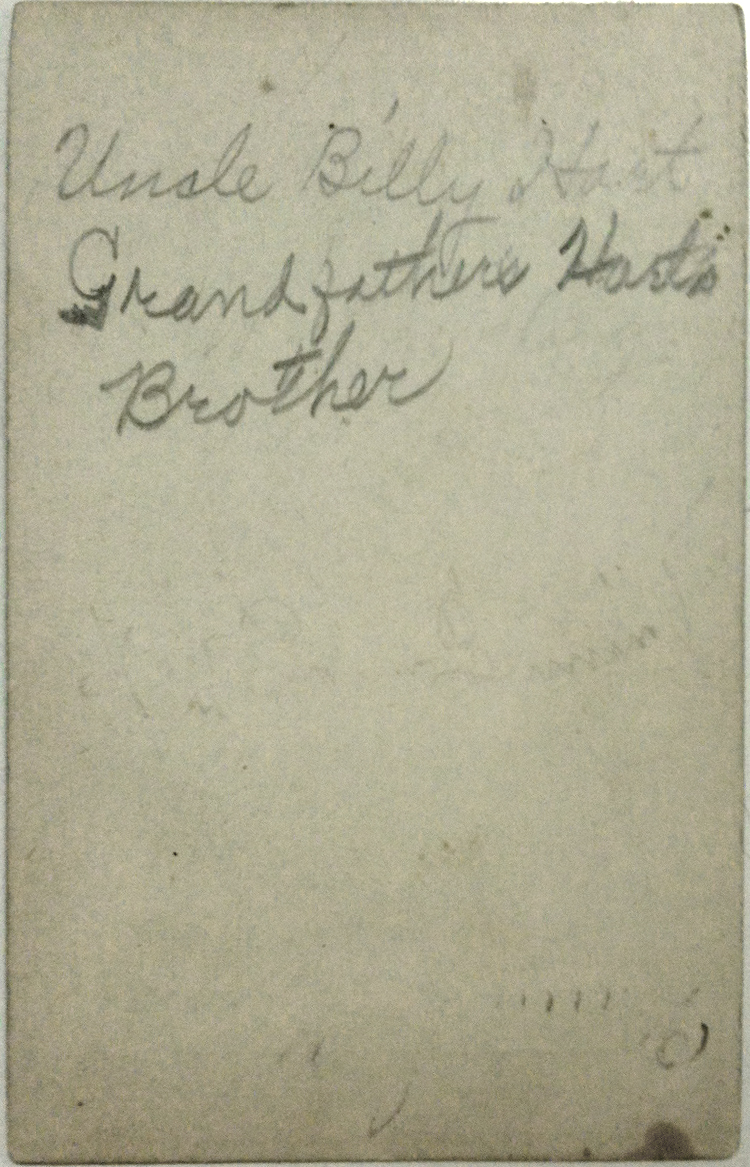 Uncle Billy Hast
Grandfathers Hasts
Brother